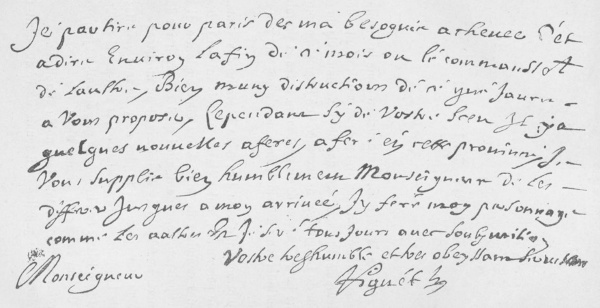 Je partiré pour paris des ma besogne achevee C'est
a dire Enuiron la fin de ce mois ou le commanssemt
de laultre, Bien muny distructions de ce que Jauré
a Vous proposer, Cependant sy de Vostre Sceu Il y a
quelques nouvelles aferes a fere en cette province Je
Vous Supplie bien humblement Monseigneur de les
differer Jusques a moy arrivee, Jy feré moy personnage
comme les aultres Je suis tous Jours avec soubmission
Vostre tres humble et tres obeyssant
Monseigneur